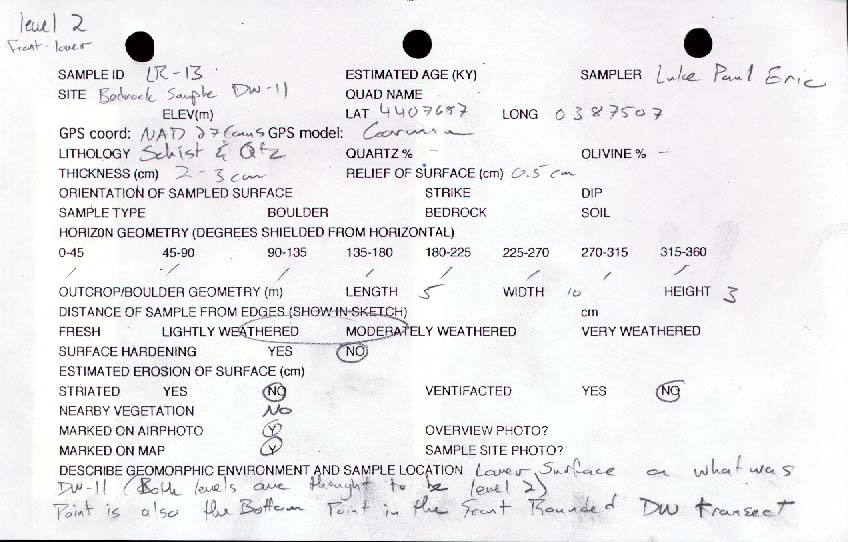 level 2
Front-lower
SAMPLE ID LR-13 ESTIMATED AGE (KY) SAMPLER Luke Paul Eric
SITE Bedrock Sample DW-11 QUAD NAME
ELEV(m) LAT 4407687 LONG 0387507
GPS coord: NAD 27 Conus GPS model: Garmin
LITHOLOGY Schist & Qtz QUARTZ % - OLIVINE % -
THICKNESS (cm) 2-3cm RELIEF OF SURFACE (cm) 0.5 cm
ORIENTATION OF SAMPLED SURFACE STRIKE DIP
SAMPLE TYPE BOULDER BEDROCK SOIL
HORIZON GEOMETRY (DEGREES SHIELDED FROM HORIZONTAL)
0-45 45-90 90-135 135-180 180-225 225-270 270-315 315-360
/ / / / / / / /
OUTCROP/BOULDER GEOMETRY (m) LENGTH 5 WIDTH 10 HEIGHT 3
DISTANCE OF SAMPLE FROM EDGES (SHOW IN SKETCH) cm
FRESH LIGHTLY WEATHERED MODERATELY WEATHERED VERY WEATHERED
SURFACE HARDENING YES NO
ESTIMATED EROSION OF SURFACE (cm)
STRIATED YES NO VENTIFACTED YES NO
NEARBY VEGETATION No
MARKED ON AIRPHOTO Y OVERVIEW PHOTO?
MARKED ON MAP Y SAMPLE SITE PHOTO?
DESCRIBE GEOMORPHIC ENVIRONMENT AND SAMPLE LOCATION Lower Surface on what was
DW-11 (Both levels are thought to be level 2)
Point is also the Bottom Point in the Front Rounded DW transect